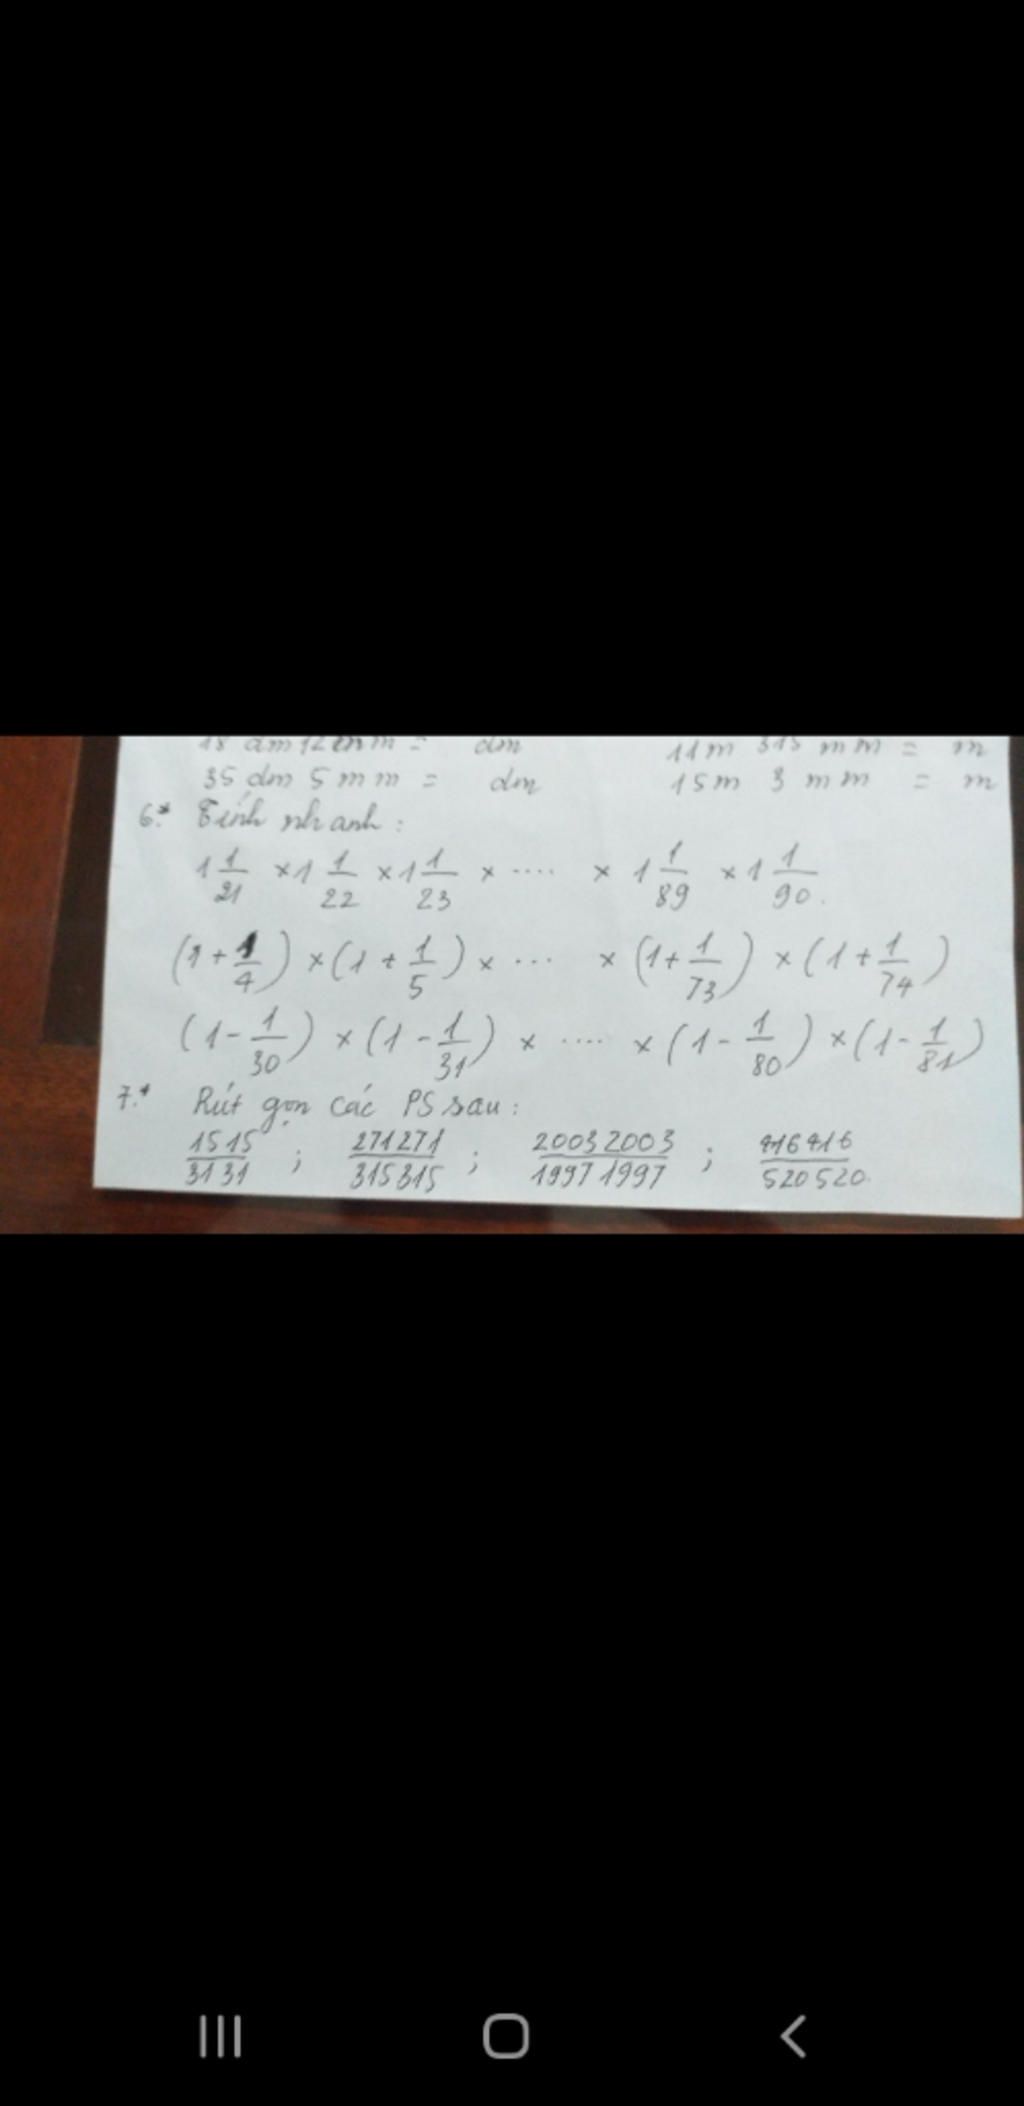 18 dm 12 mm = dm 11m 315 mm = m
35 dm 5 mm = dm 15m 3 mm = m
6.* Tính nhanh:
1 1/21 × 1 1/22 × 1 1/23 × .... × 1 1/89 × 1 1/90.
(1 + 1/4) × (1 + 1/5) × ... × (1 + 1/73) × (1 + 1/74)
(1 - 1/30) × (1 - 1/31) × .... × (1 - 1/80) × (1 - 1/81)
7.* Rút gọn các PS sau:
1515/3131 ; 271271/315315 ; 20032003/19971997 ; 416416/520520.